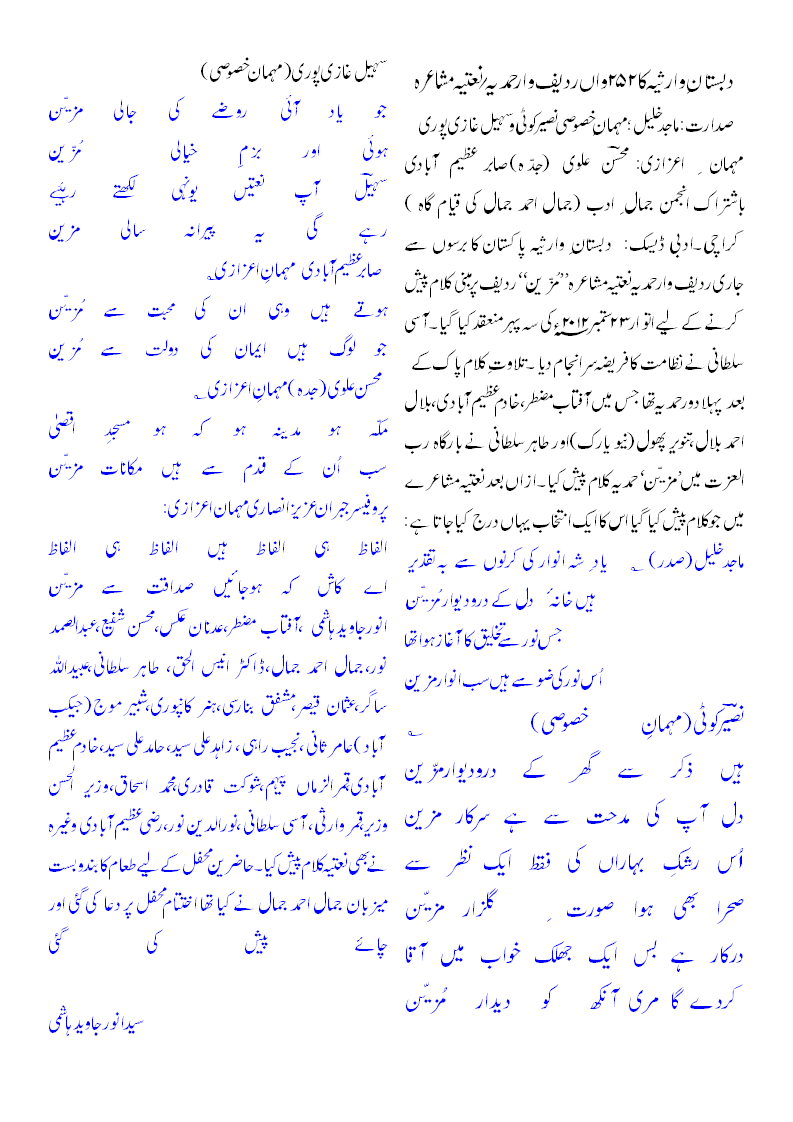 دبستانِ وارثیہ کا ۲۵۲واں ردیف وار حمدیہ/نعتیہ مشاعرہ
صدارت: ماجد خلیل؛ مہمان خصوصی نصیر کوٹی و سہیل غازی پوری
مہمان ِ اعزازی: محسنؔ علوی (جدّہ) صابر عظیم آبادی
باشتراک انجمن جمالِ ادب (جمال احمد جمال کی قیام گاہ )
کراچی۔ادبی ڈیسک: دبستانِ وارثیہ پاکستان کا برسوں سے
جاری ردیف وار حمدیہ نعتیہ مشاعرہ ’’مُزّین‘‘ ردیف پر مبنی کلام پیش
کرنے کے لیے اتوار ۲۳ ستمبر ۲۰۱۲ء کی سہ پہر منعقد کیا گیا۔ آسی
سلطانی نے نظامت کا فریضہ سرانجام دیا ۔ تلاوتِ کلام پاک کے
بعد پہلا دور حمدیہ تھا جس میں آفتاب مضطر، خادم عظیم آبادی، بلال
احمد بلال، تنویر پھول (نیو یارک) اور طاہر سلطانی نے بارگاہ رب
العزت میں ’مزیّن‘ حمدیہ کلام پیش کیا۔ ازاں بعد نعتیہ مشاعرے
میں جو کلام پیش کیا گیا اس کا ایک انتخاب یہاں درج کیا جاتا ہے:
ماجد خلیل (صدر) ؎ یادِ شہ انوار کی کرنوں سے بہ تقدیر
ہیں خانۂ دل کے در و دیوار مُزیّن
جس نور سے تخلیق کا آغاز ہوا تھا
اُس نور کی ضو سے ہیں سب انوار مزین
نصیرؔ کوٹی (مہمانِ خصوصی) ؎
ہیں ذکر سے گھر کے درودیوار مزّین
دل آپ کی مدحت سے ہے سرکار مزین
اُس رشکِ بہاراں کی فقط ایک نظر سے
صحرا بھی ہوا صورت ِ گلزار مزیّن
درکار ہے بس ایک جھلک خواب میں آقا
کردے گا مری آنکھ کو دیدار مُزیّن
سہیل غازی پوری (مہمان خصوصی)
جو یاد آئی روضے کی جالی مزیّن
ہوئی اور بزمِ خیالی مُزّین
سہیلؔ آپ نعتیں یونہی لکھتے رہئیے
رہے گی یہ پیرانہ سالی مزین
صابر عظیم آبادی مہمانِ اعزازی؎
ہوتے ہیں وہی ان کی محبت سے مُزیّن
جو لوگ ہیں ایمان کی دولت سے مُزین
محسن علوی (جدہ) مہمانِ اعزازی ؎
مکّہ ہو مدینہ ہو کہ ہو مسجدِ اقصیٰ
سب اُن کے قدم سے ہیں مکانات مزیّن
پروفیسر جبران عزیز انصاری مہمان اعزازی:
الفاظ ہی الفاظ ہیں الفاظ ہی الفاظ
اے کاش کہ ہوجائیں صداقت سے مزیّن
انور جاوید ہاشمی ، آفتاب مضطر، عدنان عکس، محسن شفیع، عبدالصمد
نور، جمال احمد جمال، ڈاکٹر انیس الحق، طاہر سلطانی، عبید اللہ
ساگر، عثمان قیصر، مشفق بنارسی، ہنر کانپوری، شبیر موج (جیکب
آباد) عامر ثانی ، نجیب راہی ، زاہد علی سید، حامد علی سید، خادم عظیم
آبادی، قمر الزماں پیہم، شوکت قادری، محمد اسحاق، وزیر الحسن
وزیر، قمر وارثی، آسی سلطانی، نورالدین نور، رضی عظیم آبادی وغیرہ
نے بھی نعتیہ کلام پیش کیا۔ حاضرینِ محفل کے لیے طعام کا بندوبست
میزبان جمال احمد جمال نے کیا تھا اختتامِ محفل پر دعا کی گئی اور
چائے پیش کی گئی
سید انور جاوید ہاشمی